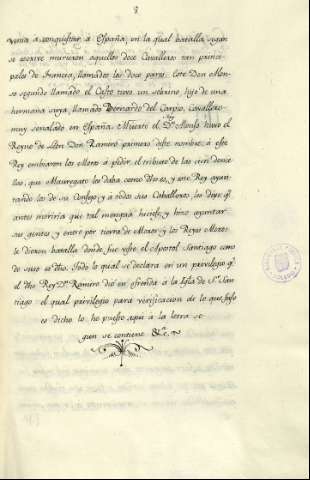 8
venia a conquistar á España, en la qual batalla, segun
se escrive murieron aquellos doce Cavalleros tan princi-
pales de Francia, llamados los doce pares. Este Don Alon-
so segundo llamado el Casto tuvo un sobrino, hijo de una
hermana suya, llamado Bernardo del Carpio, Cavallero
muy señalado en España. Muerto el Rey Dn Alonso huvo el
Reyno de Leon Don Ramiro primero deste nombre: á este
Rey embiaron los Moros á pedir el tributo de las cien donce-
llas, que Mauregato les daba como dho es, y este Rey ayun-
tando los de su Consejo y a todos sus Caballeros, les dijo q.
antes moriria que tal mengua hiciese, y hizo ayuntar
sus gentes y entró por tierra de Moros y los Reyes Moros
le dieron batalla donde fue visto el Apostol Santiago como
de suso es dho. Todo lo qual se declara en un privilegio q.
el dho Rey Dn Ramiro dió en ofrenda á la Igla de Sn. San-
tiago el qual privilegio para verificacion de lo que suso
es dicho lo he puesto aqui á la letra se-
gun se contiene &c.a